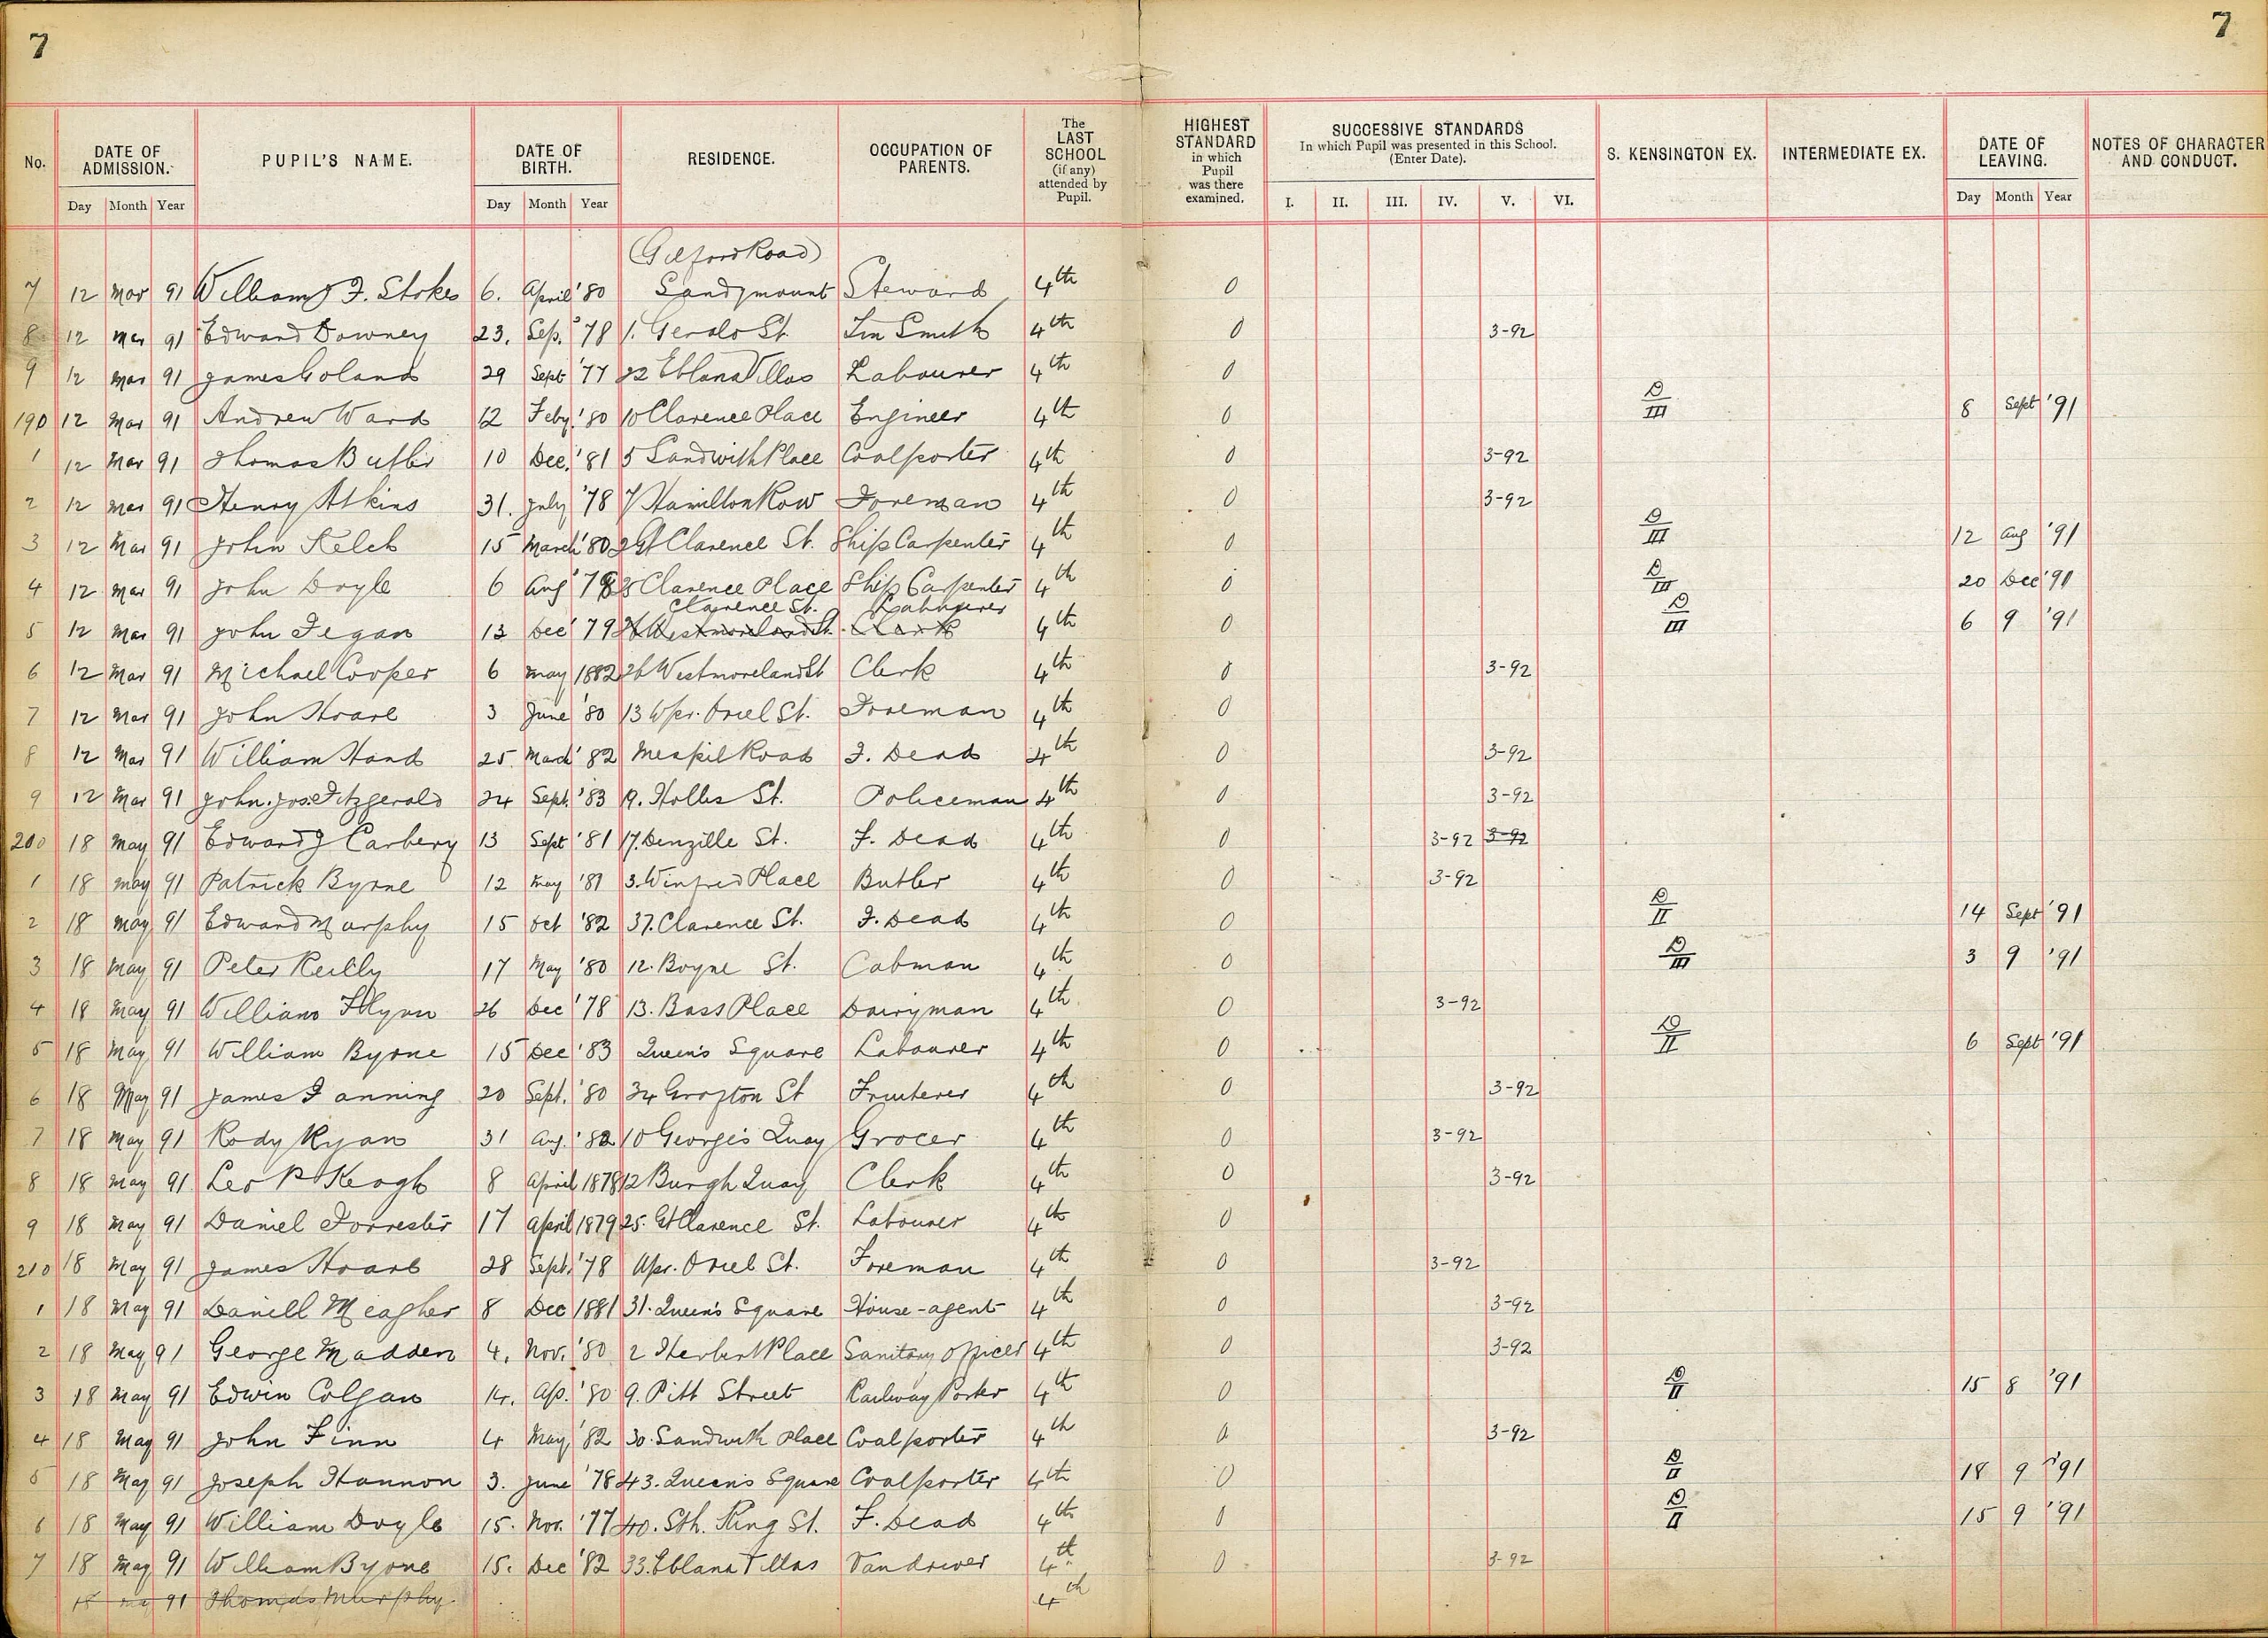 7 7
No. DATE OF ADMISSION. PUPIL'S NAME. DATE OF BIRTH. RESIDENCE. OCCUPATION OF PARENTS. The LAST SCHOOL (if any) attended by Pupil. HIGHEST STANDARD in which Pupil was there examined. SUCCESSIVE STANDARDS In which Pupil was presented in this School. (Enter Date). S. KENSINGTON EX. INTERMEDIATE EX. DATE OF LEAVING. NOTES OF CHARACTER AND CONDUCT.
Day Month Year Day Month Year I. II. III. IV. V. VI. Day Month Year
(Gilford Road)
7 12 Mar 91 William J. Stokes 6. April '80 Sandymount Steward 4th 0
8 12 Mar 91 Edward Downey 23. Sep. '78 1. Gerald St. Tin Smith 4th 0 3-92
9 12 Mar 91 James Goland 29 Sept '77 22 Eblana Villas Labourer 4th 0
190 12 Mar 91 Andrew Ward 12 Feby. '80 10 Clarence Place Engineer 4th 0 D/III 8 Sept '91
1 12 Mar 91 Thomas Butler 10 Dec. '81 5 Sandwith Place Coalporter 4th 0 3-92
2 12 Mar 91 Henry Atkins 31. July '78 7 Hamilton Row Foreman 4th 0 3-92
3 12 Mar 91 John Kelch 15 March '80 2 Gt Clarence St. Ship Carpenter 4th 0 D/III 12 Aug '91
4 12 Mar 91 John Doyle 6 Aug '78 Clarence Place Ship Carpenter 4th 0 D/III 20 Dec '91
Clarence St. Labourer
5 12 Mar 91 John Fegan 13 Dec '79 26 Westmoreland St. Clerk 4th 0 D/III 6 9 '91
6 12 Mar 91 Michael Cooper 6 May 1882 26 Westmoreland St Clerk 4th 0 3-92
7 12 Mar 91 John Hoare 3 June '80 13 Upr. Oriel St. Foreman 4th 0
8 12 Mar 91 William Hand 25. March '82 Mespil Road F. Dead 4th 0 3-92
9 12 Mar 91 John. Jos. Fitzgerald 24 Sept. '83 19. Holles St. Policeman 4th 0 3-92
200 18 May 91 Edward J Carbery 13 Sept '81 17. Denzille St. F. Dead 4th 0 3-92 3-92
1 18 May 91 Patrick Byrne 12 May '81 3. Winfred Place Butler 4th 0 3-92
2 18 May 91 Edward Murphy 15 Oct '82 37. Clarence St. F. Dead 4th 0 D/II 14 Sept '91
3 18 May 91 Peter Reilly 17 May '80 12. Boyne St. Cabman 4th 0 D/III 3 9 '91
4 18 May 91 William Flynn 26 Dec '78 13. Bass Place Dairyman 4th 0 3-92
5 18 May 91 William Byrne 15 Dec '83 Queen's Square Labourer 4th 0 D/II 6 Sept '91
6 18 May 91 James Fanning 20 Sept. '80 34 Grafton St Fruiterer 4th 0 3-92
7 18 May 91 Rody Ryan 31 Aug. '82 10 George's Quay Grocer 4th 0 3-92
8 18 May 91 Leo P Keogh 8 April 1878 12 Burgh Quay Clerk 4th 0 3-92
9 18 May 91 Daniel Forrester 17 April 1879 25. Gt Clarence St. Labourer 4th 0
210 18 May 91 James Hoare 28 Sept. '78 Upr. Oriel St. Foreman 4th 0 3-92
1 18 May 91 Daniell Meagher 8 Dec 1881 31. Queen's Square House-agent 4th 0 3-92
2 18 May 91 George Madden 4. Nov. '80 2 Herbert Place Sanitary Officer 4th 0 3-92
3 18 May 91 Edwin Colgan 14. Ap. '80 9. Pitt Street Railway Porter 4th 0 D/II 15 8 '91
4 18 May 91 John Finn 4 May '82 30. Sandwith Place Coalporter 4th 0 3-92
5 18 May 91 Joseph Hannon 3. June '78 43. Queen's Square Coalporter 4th 0 D/II 18 9 '91
6 18 May 91 William Doyle 15. Nov. '77 40. Sth. King St. F. Dead 4th 0 D/II 15 9 '91
7 18 May 91 William Byrne 15. Dec '82 33. Eblana Villas Vandriver 4th 0 3-92
18 May 91 Thomas Murphy. 4th